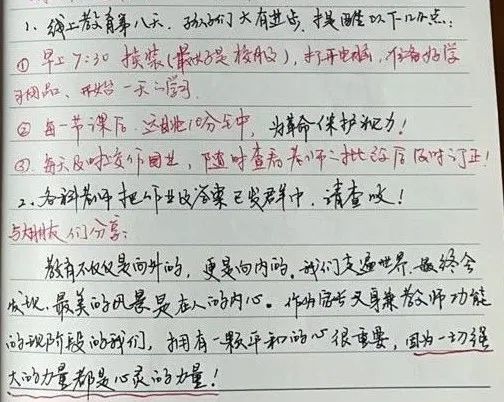 1、线上教育第八天,孩子们大有进步,提醒以下几点:
① 早上7:30 换装(最好是校服),打开电脑,准备好学
习用品、开始一天的学习.
② 每一节课后.这10分钟中,为革命保护视力!
③. 每天及时交作业,随时查看老师二批后及时订正!
2、各科老师把作业及答案已发群中,请查收!
与大朋友们分享:
教育不仅仅是向外的,更是向内的。我们走遍世界.最终会
发现,最美的风景是在人的内心。作为家长又身兼教师功能
的现阶段的我们,拥有一颗平和的心很重要,因为一切强
大的力量都是心灵的力量!